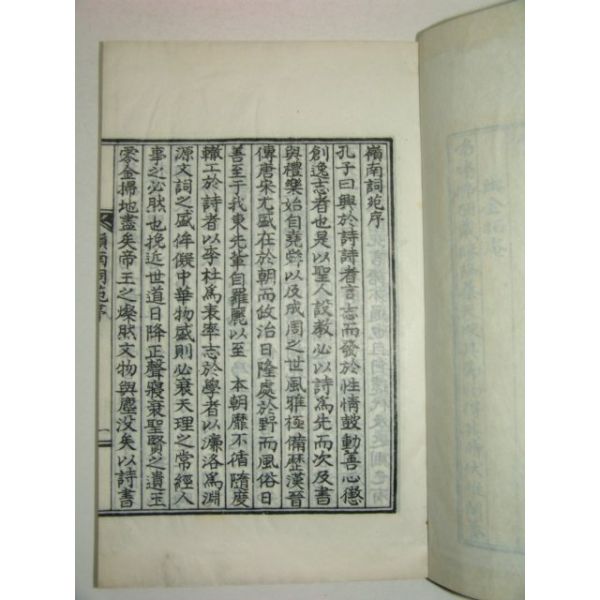 嶺南詞苑序
孔子曰興於詩詩者言志而發於性情鼓動善心懲
創逸志者也是以聖人設教必以詩爲先而次及書
與禮樂始自堯舜以及成周之世風雅極備歷漢晉
傳唐宋尤盛在於朝而政治日隆處於野而風俗日
善至于我東先軰自羅麗以至 本朝靡不循隨度
轍工於詩者以李杜爲表率志於學者以濂洛爲淵
源文詞之盛侔儗中華物盛則必衰天理之常經人
事之必然也挽近世道日降正聲寢衰聖賢之遺玉
零金掃地盡矣帝王之燦然文物與塵沒矣以詩書
嶺南詞苑序